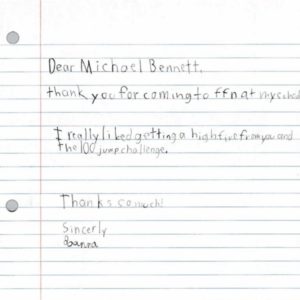 Dear Michael Bennett,
thank you for coming to ffn at my school
I really liked getting a high five from you and
the 100 jump challenge.
Thanks so much!
Sincerly